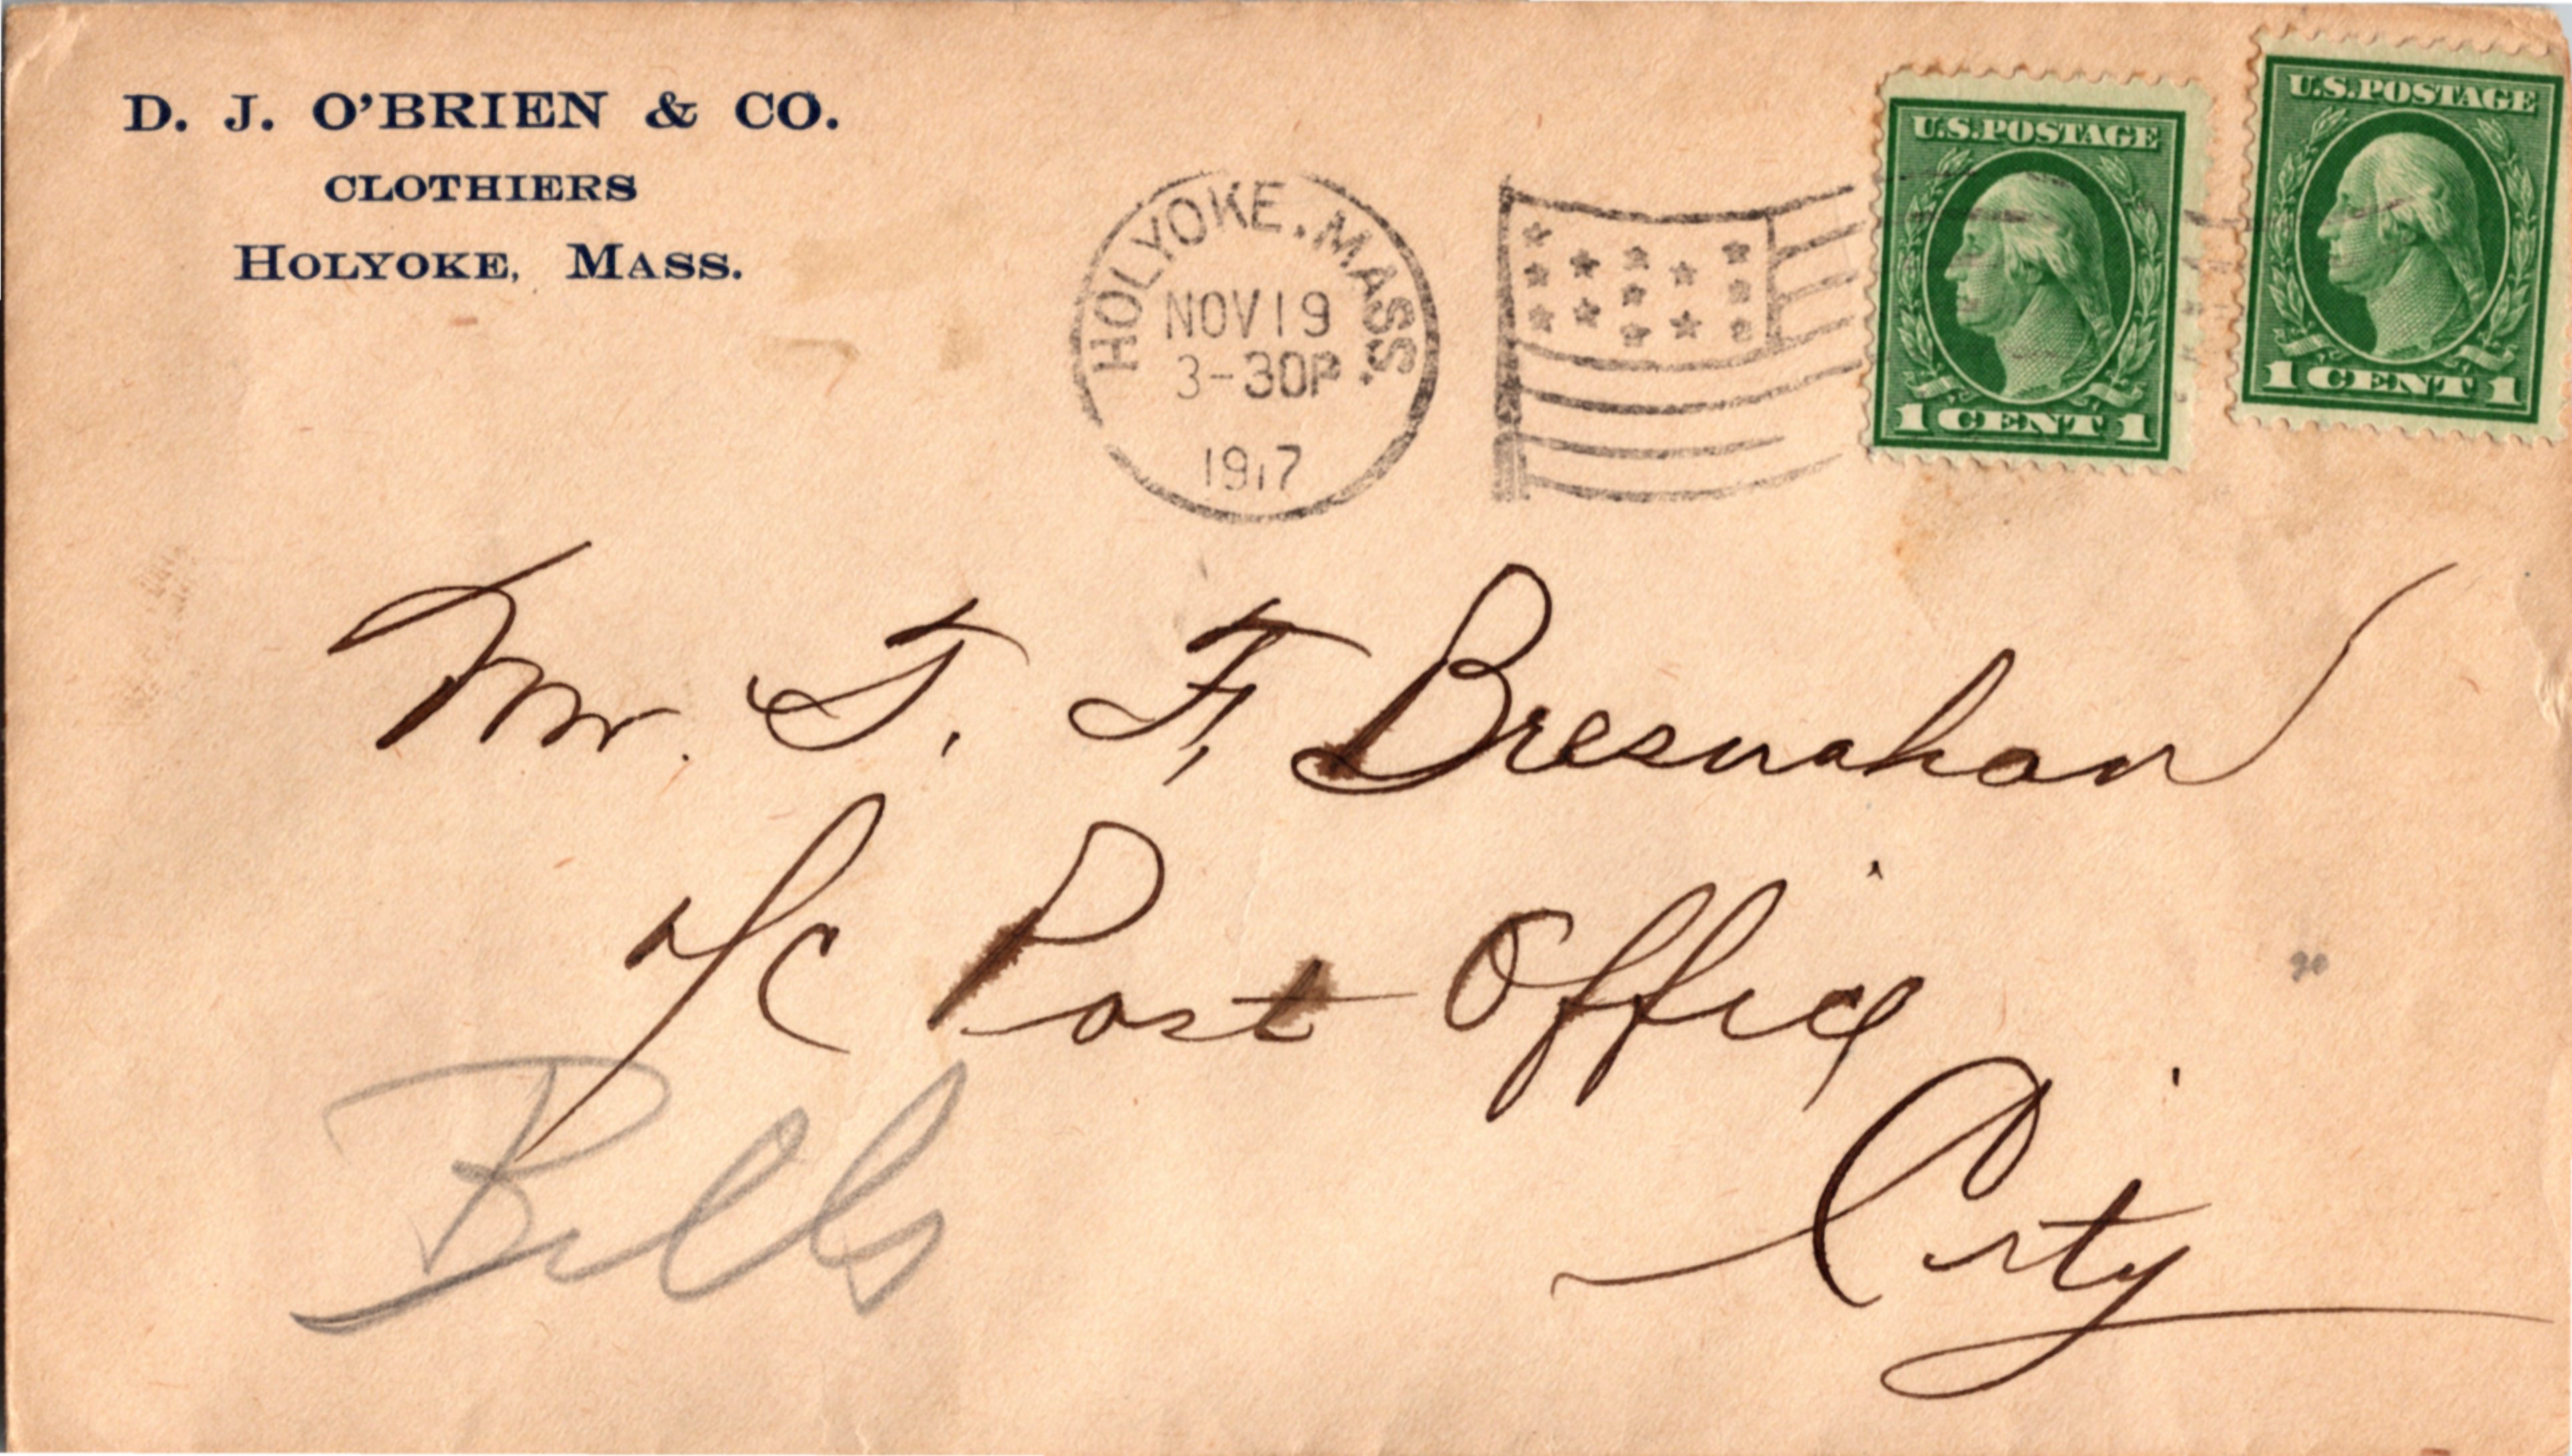 D. J. O'BRIEN & CO.
CLOTHIERS
HOLYOKE, MASS.
HOLYOKE, MASS.
NOV 19
3-30P
1917
U.S. POSTAGE
1 CENT 1
U.S. POSTAGE
1 CENT 1
Mr. T. F. Bresnahan
c/c Post Office
City
Bills